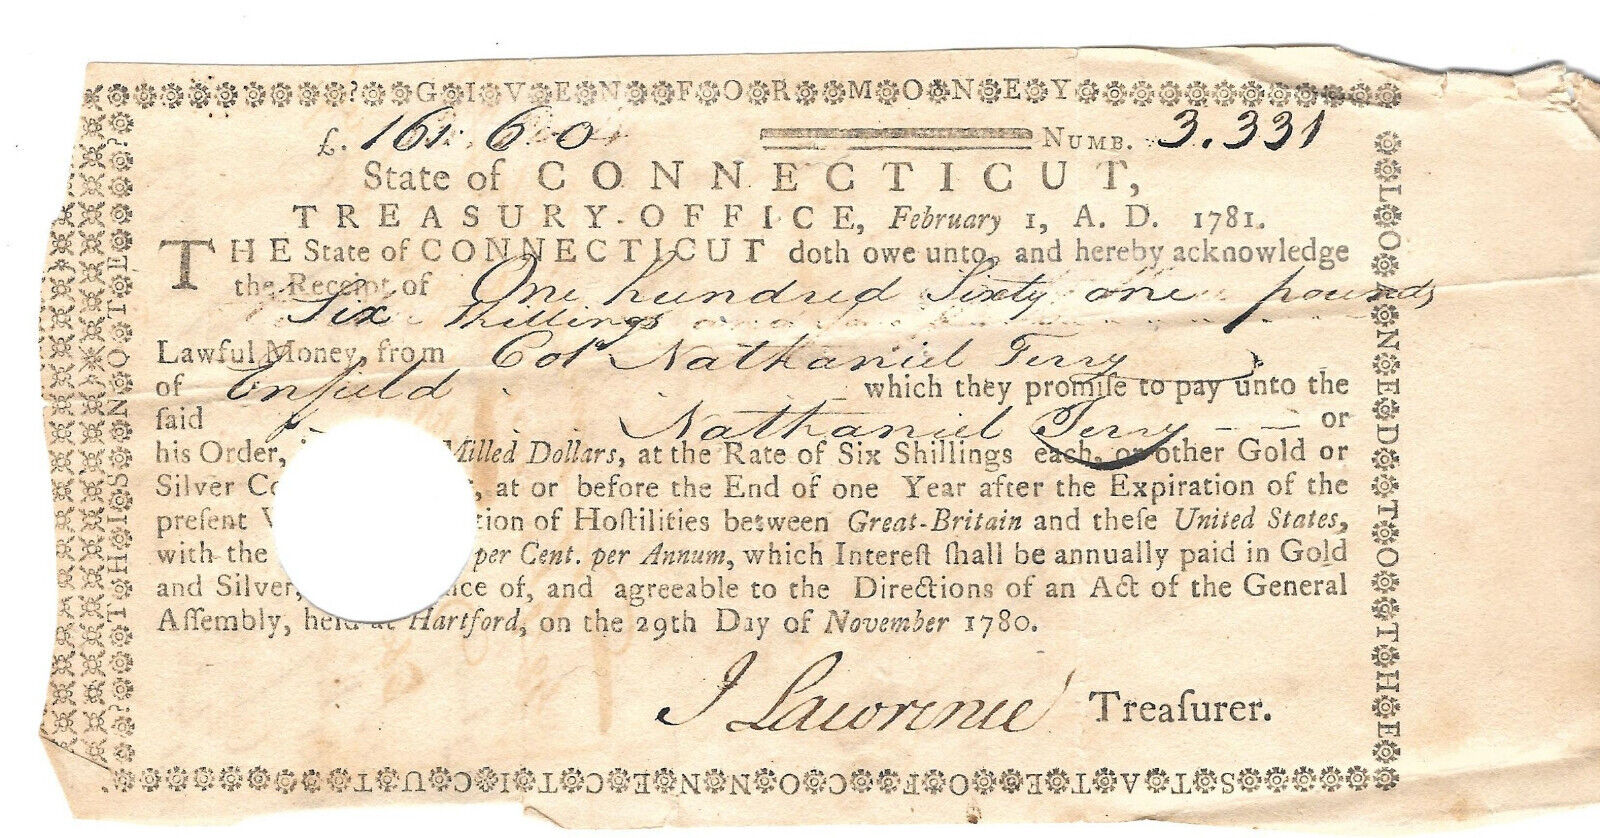 GIVEN FOR MONEY
£. 161. 6. 0 NUMB. 3.331
State of CONNECTICUT,
TREASURY-OFFICE, February 1, A. D. 1781.
THE State of CONNECTICUT doth owe unto, and hereby acknowledge
the Receipt of One hundred Sixty one pounds
Six Shillings
Lawful Money, from Col Nathaniel Terry
of Enfield which they promiſe to pay unto the
ſaid Nathaniel Terry or
his Order, Milled Dollars, at the Rate of Six Shillings each, or other Gold or
Silver at or before the End of one Year after the Expiration of the
preſent tion of Hoſtilities between Great-Britain and theſe United States,
with the per Cent. per Annum, which Intereſt ſhall be annually paid in Gold
and Silver, nce of, and agreeable to the Directions of an Act of the General
Aſſembly, held at Hartford, on the 29th Day of November 1780.
J Lawrence Treaſurer.
LOANED TO THE
STATE OF CONNECTICUT
THIS NOTE